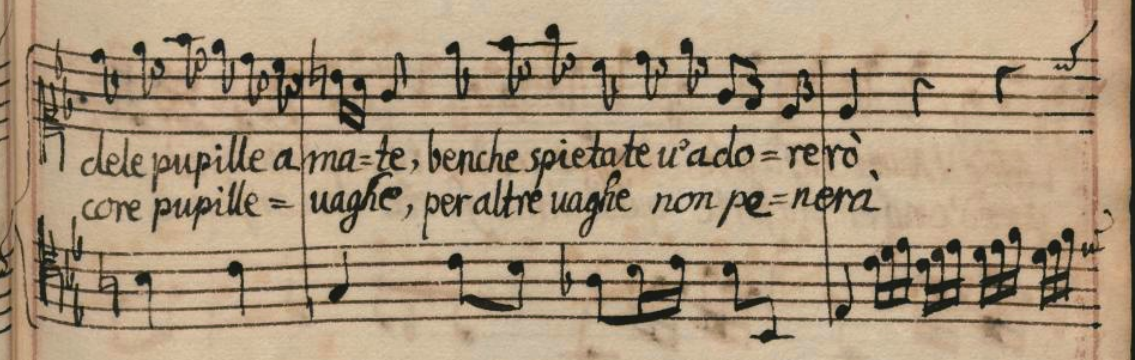 dele pupille a ma=te, benche spietate v'ado=rerò
core pupille= vaghe, per altre vaghe non pe=nerà